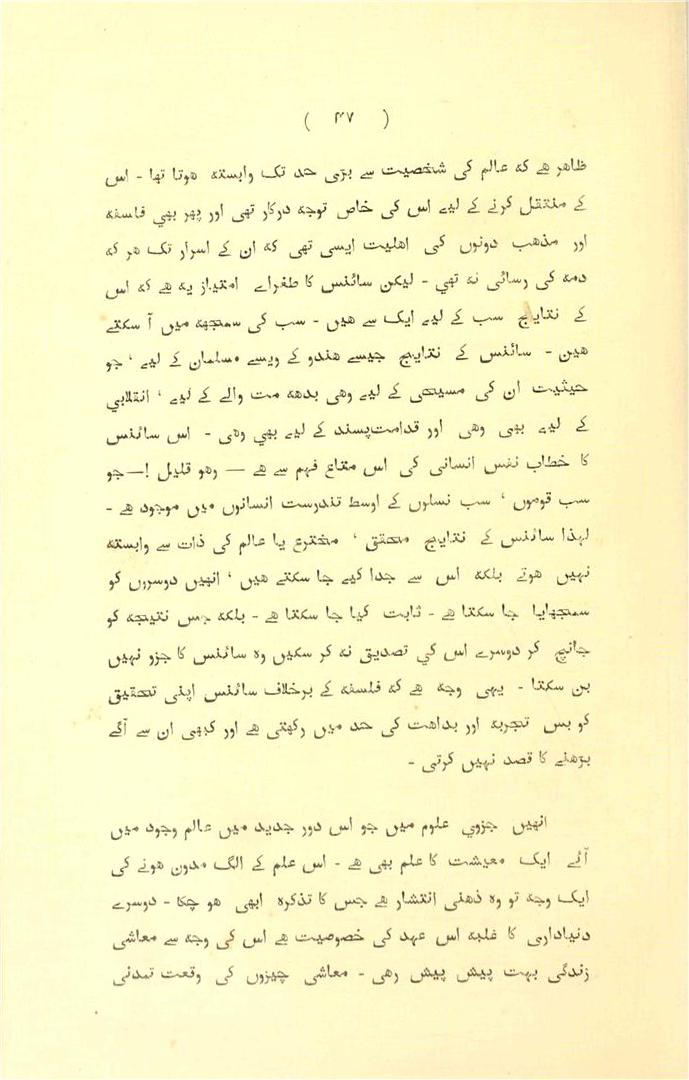 ( ۴۷ )
ظاهر هے که عالم کی شخصیت سے بڑی حد تک وابسته هوتا تھا - اس
کے منتقل کرنے کے لیے اس کی خاص توجه درکار تھی اور پھر بھي فلسفه
اور مذهب دونوں کی اهلیت ایسی تھی که ان کے اسرار تک هر که
دمه کی رسائی نه تھي - لیکن سائنس کا طغراے امتیاز یه هے که اس
کے نتایج سب کے لیے ایک سے هیں - سب کی سمجھه میں آ سکتے
هین - سائنس کے نتایج جیسے هندو کے ویسے مسلمان کے لیے ' جو
حیثیت ان کی مسیحی کے لیے وهی بدهه مت والے کے لیے ' انقلابي
کے لیے بھی وهی اور قدامت‌پسند کے لیے بھي وهی - اس سائنس
کا خطاب نفس انسانی کی اس متاع فهم سے هے — وهو قلیل ! — جو
سب قوموں ' سب نسلوں کے اوسط تندرست انسانوں میں موجود هے -
لهذا سائنس کے نتایج محقق ' مخترع یا عالم کی ذات سے وابسته
نهیں هوتے بلکه اس سے جدا کیے جا سکتے هیں ' انهیں دوسروں کو
سمجھایا جا سکتا هے - ثابت کیا جا سکتا هے - بلکه جس نتیجه کو
جانچ کر دوسرے اس کي تصدیق نه کر سکیں وه سائنس کا جزو نهیں
بن سکتا - یهی وجه هے که فلسفه کے برخلاف سائنس اپنی تحقیق
کو بس تجربه اور بداهت کی حد میں رکھتی هے اور کبھی ان سے آگے
بڑھنے کا قصد نهیں کرتی -
انهیں جزوي علوم میں جو اس دور جدید میں عالم وجود میں
آئے ایک معیشت کا علم بھی هے - اس علم کے الگ مدون هونے کی
ایک وجه تو وه ذهنی انتشار هے جس کا تذکره ابھی هو چکا - دوسرے
دنیاداری کا غلبه اس عهد کی خصوصیت هے اس کی وجه سے معاشی
زندگی بهت پیش پیش رهی - معاشی چیزوں کی وقعت تمدنی